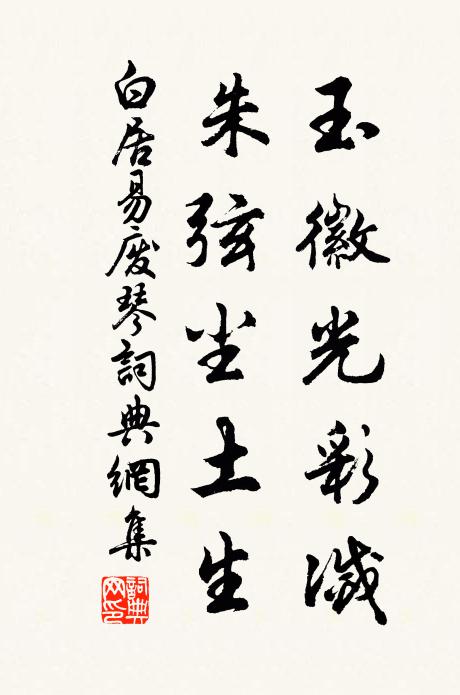 玉徽光彩滅
朱弦尘土生
白居易废琴詞典網集
詞典网印